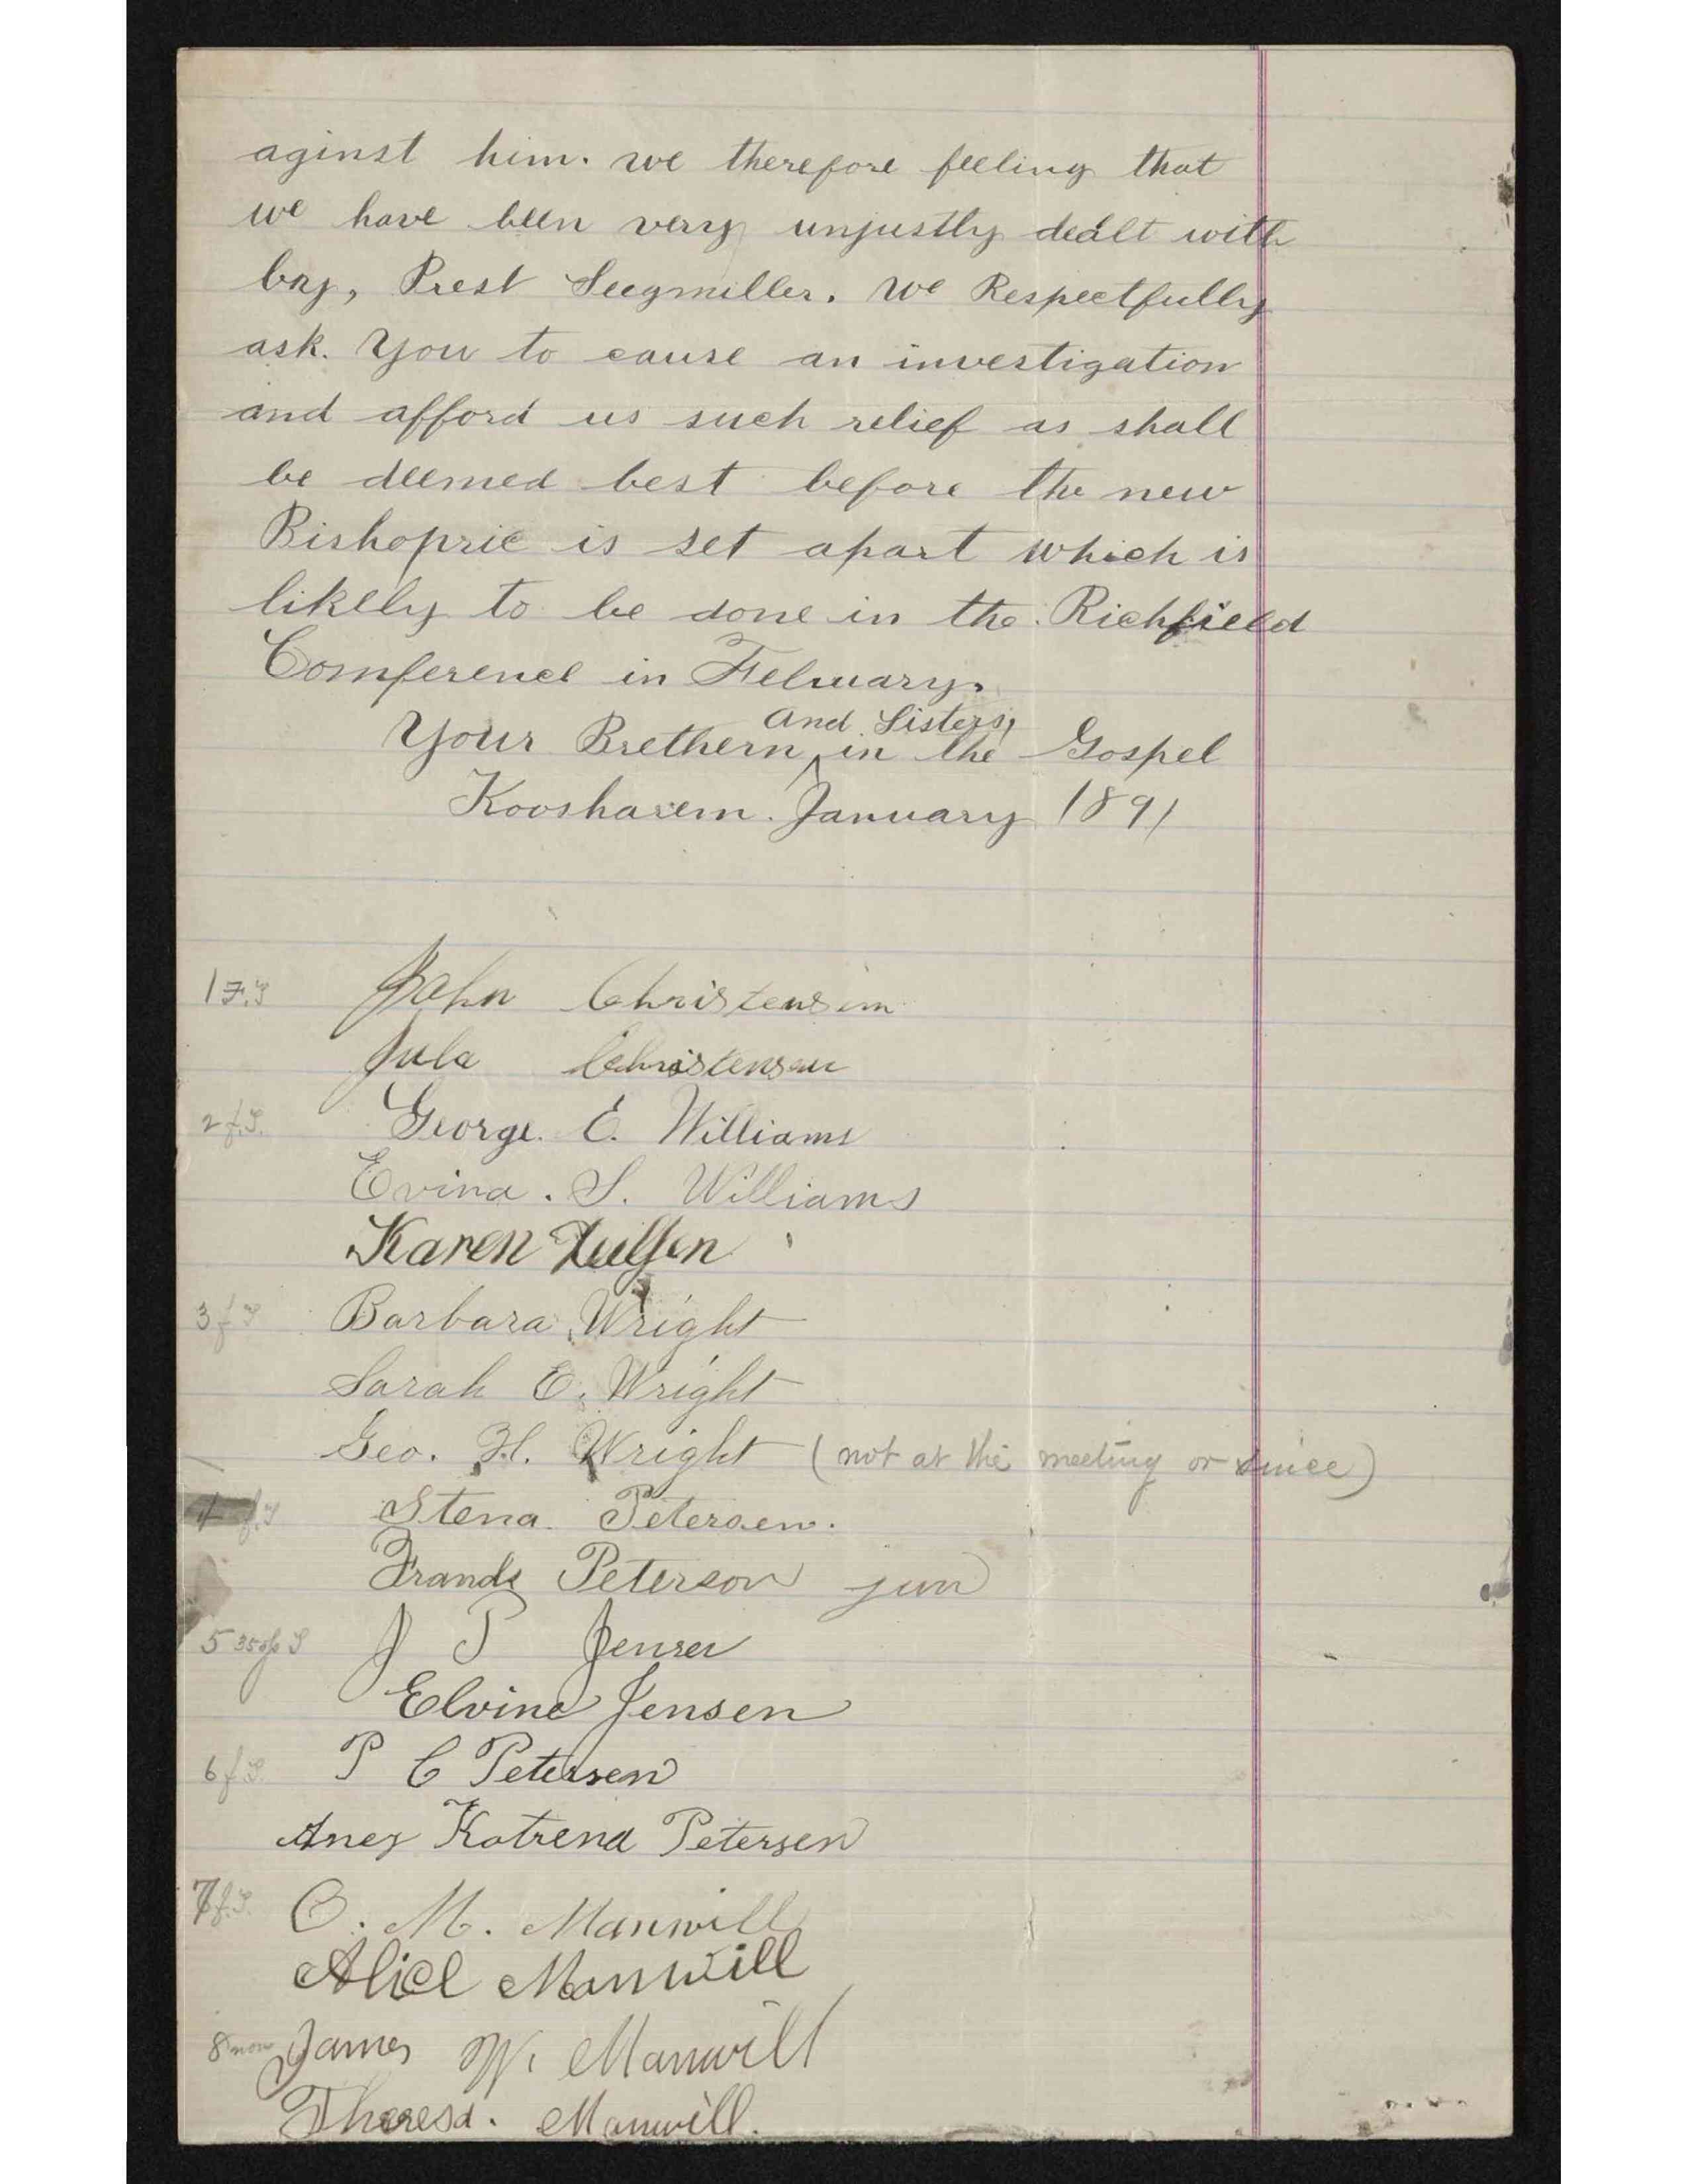 aginst him. we therefore feeling that
we have been very unjustly dealt with
by, Prest Seegmiller. We Respectfully
ask. You to cause an investigation
and afford us such relief as shall
be deemed best before the new
Bishopric is set apart which is
likely to be done in the Richfield
Comference in Feluary.
and Sisters,
Your Brethern in the Gospel
Koosharem. January 1891
1 F.S John Christensen
Jula Christensen
2 f.S. George. E. Williams
Evina. S. Williams
Karen
3 f S Barbara Wright
Sarah E. Wright
Geo. H. Wright (not at the meeting or since)
f.S Stena Petersen.
Frands Peterson jun
5 S J P Jensen
Elvine Jensen
6 f S. P C Petersen
Aney Katrena Petersen
7 f.S. O. M. Manwill
Alice Manwill
8 non James W. Manwill
Theresa. Manwill.